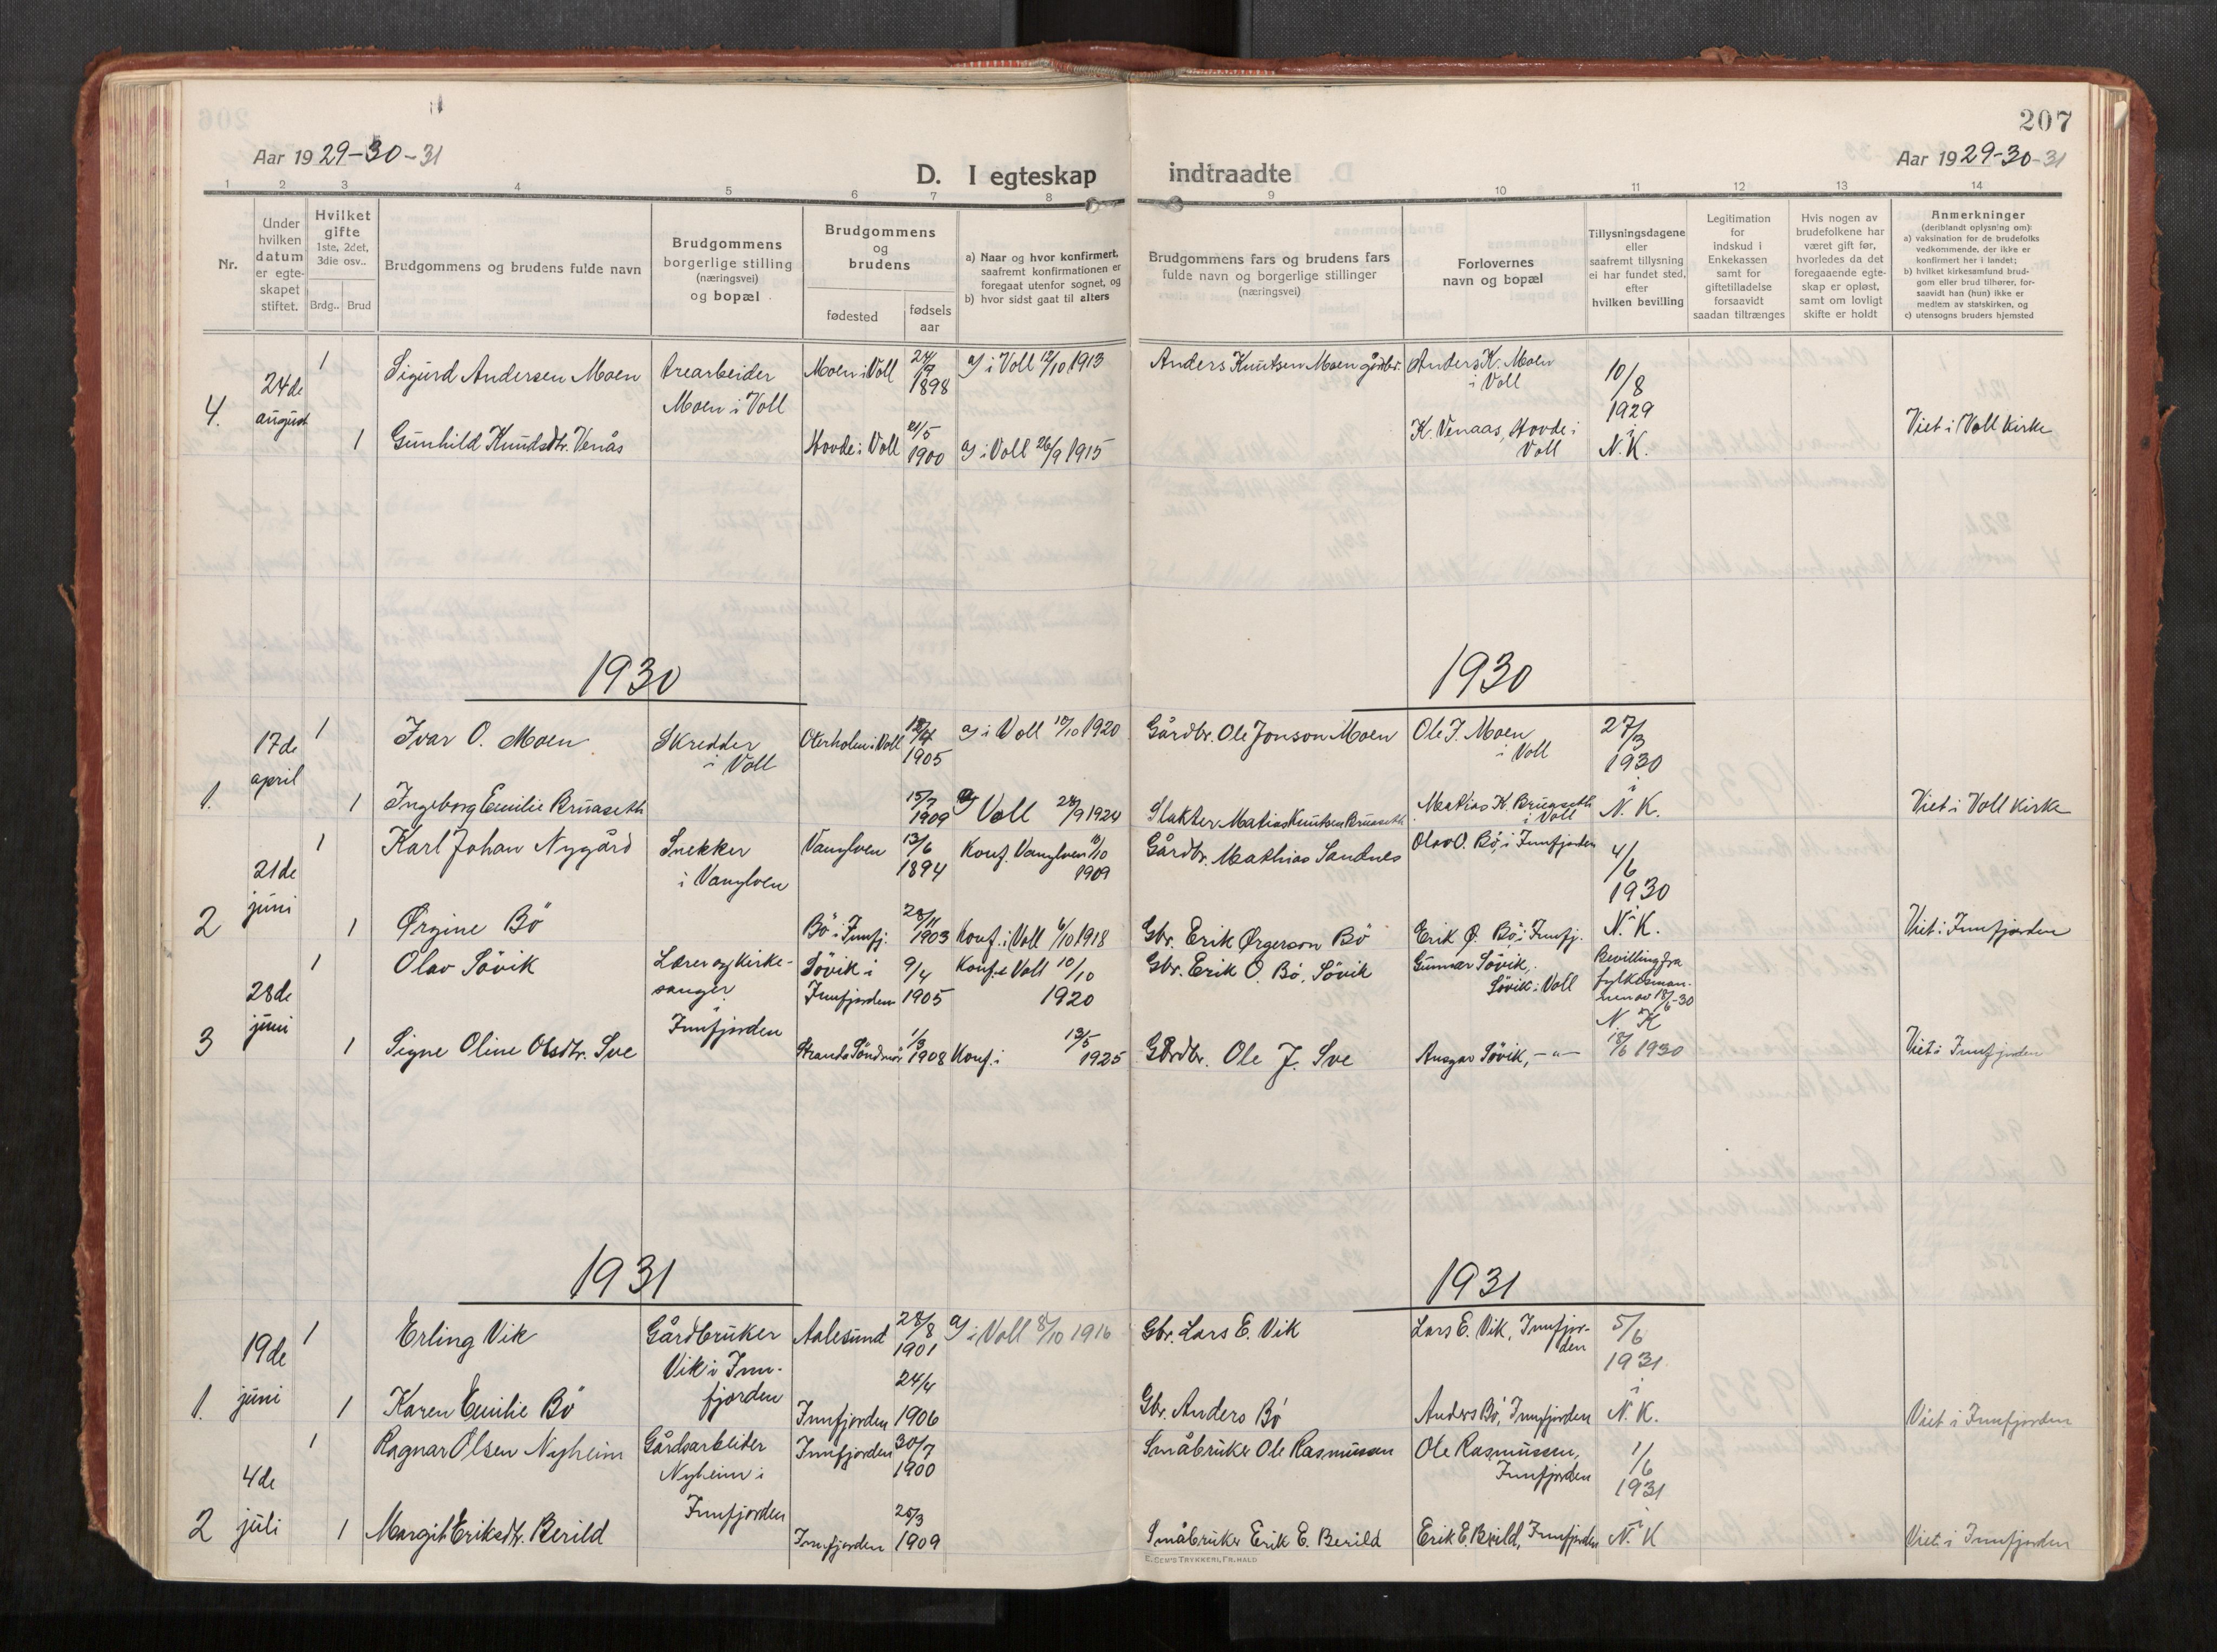 207
Aar 1929-30-31
Aar 1929-30-31
D. I egteskap indtraadte
1 2 3 4 5 6 7 8 9 10 11 12 13 14
Nr.
Under
hvilken
datum
er egte-
skapet
stiftet.
Hvilket
gifte
1ste, 2det,
3die osv..
Brdg.. Brud
Brudgommens og brudens fulde navn
Brudgommens
borgerlige stilling
(næringsvei)
og bopæl
Brudgommens
og
brudens
fødested
fødsels
aar
a) Naar og hvor konfirmert,
saafremt konfirmationen er
foregaat utenfor sognet, og
b) hvor sidst gaat til alters
Brudgommens fars og brudens fars
fulde navn og borgerlige stillinger
(næringsvei)
Forlovernes
navn og bopæl
Tillysningsdagene
eller
saafremt tillysning
ei har fundet sted,
efter
hvilken bevilling
Legitimation
for
indskud i
Enkekassen
samt for
giftetilladelse
forsaavidt
saadan tiltrænges
Hvis nogen av
brudefolkene har
været gift før,
hvorledes da det
foregaaende egte-
skap er opløst,
samt om lovligt
skifte er holdt
Anmerkninger
(deriblandt oplysning om):
a) vaksination for de brudefolks
vedkommende, der ikke er
konfirmert her i landet;
b) hvilket kirkesamfund brud-
gom eller brud tilhører, for-
saavidt han (hun) ikke er
medlem av statskirken, og
c) utensogns bruders hjemsted
4. 24de august
1 Sigurd Andersen Moen
trearbeider
Moen i Voll
Moen i Voll
1898
a) i Voll 12/10 1913
Anders Knutsen Moen gårdbr.
Anders K. Moen
i Voll
10/8
1929
i
N. K.
1 Gunhild Knudsdtr. Venås
Hovde i Voll
21/5
1900
a) i Voll 26/9 1915
K. Venaas, Hovde i
Voll
Viet i Voll kirke
1930
1930
1. 17de april
1 Ivar O. Moen
Skredder
i Voll
Oterholm i Voll
1905
a) i Voll 10/10 1920
Gårdbr. Ole Jonson Moen
Ole J. Moen
i Voll
27/3
1930
i
N. K.
1 Ingeborg Emilie Bruaseth
15/7
1909
a) Voll 28/9 1924
Slakter Matias Knutsen Bruaseth
Matias K. Bruaseth
i Voll
Viet i Voll kirke
2 21de juni
1 Karl Johan Nygård
Snekker
i Vanylven
Vanylven
13/6
1894
Konf. Vanylven 10/10
1909
Gårdbr. Mathias Sandnes
Olav O. Bö, i Innfjorden
4/6
1930
i
N. K.
1 Ørgine Bö
Bö i Innfj.
28/11
1903
Konf. i Voll 6/10 1918
Gbr. Erik Ørgerson Bö
Erik Ø. Bö, i Innfj.
Viet i Innfjorden
3 28de juni
1 Olav Sövik
Lærer og kirke-
sanger
i
Innfjorden
Sövik i
Innfjorden
9/4
1905
Konf. i Voll 10/10
1920
Gbr. Erik O. Bö, Sövik
Gunnar Sövik,
Sövik i Voll
Bevilling fra
fylkesman-
nen av 18/6-30
N. K
18/6 1930
1 Signe Oline Olsdtr. Sve
Stranda Söndmör
1/3
1908
Konf. i
13/5
1925
Gårdbr. Ole J. Sve
Ansgar Sövik, -"-
Viet i Innfjorden
1931
1931
1. 19de juni
1 Erling Vik
Gårdbruker
Vik i Inn-
fjorden
Aalesund
28/8
1901
a) i Voll 8/10 1916
Gbr. Lars E. Vik
Lars E. Vik, Innfjor-
den
5/6
1931
i
N. K.
1 Karen Emilie Bö
Innfjorden
24/4
1906
Gbr. Anders Bö
Anders Bö, Innfjorden
Viet i Innfjorden
2 4de juli
1 Ragnar Olsen Nyheim
Gårdsarbeider
Nyheim i
Innfjorden
Innfjorden
30/7
1900
Småbruker Ole Rasmussen
Ole Rasmussen,
Innfjorden
1/6
1931
i
N. K
1 Margit Eriksdtr. Berild
Innfjorden
25/3
1909
Småbruker Erik E. Berild
Erik E. Berild, Innfjorden
Viet i Innfjorden
E. SEM'S TRYKKERI, FR.HALD